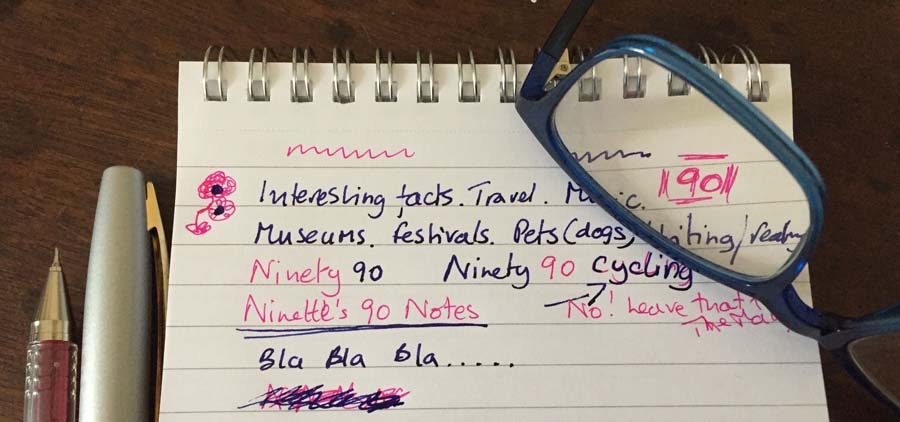 90
Interesting facts. Travel. Music.
Museums. festivals. Pets (dogs,
Ninety 90 Ninety 90 Cycling
Ninette's 90 Notes No! Leave that
Bla Bla Bla.....